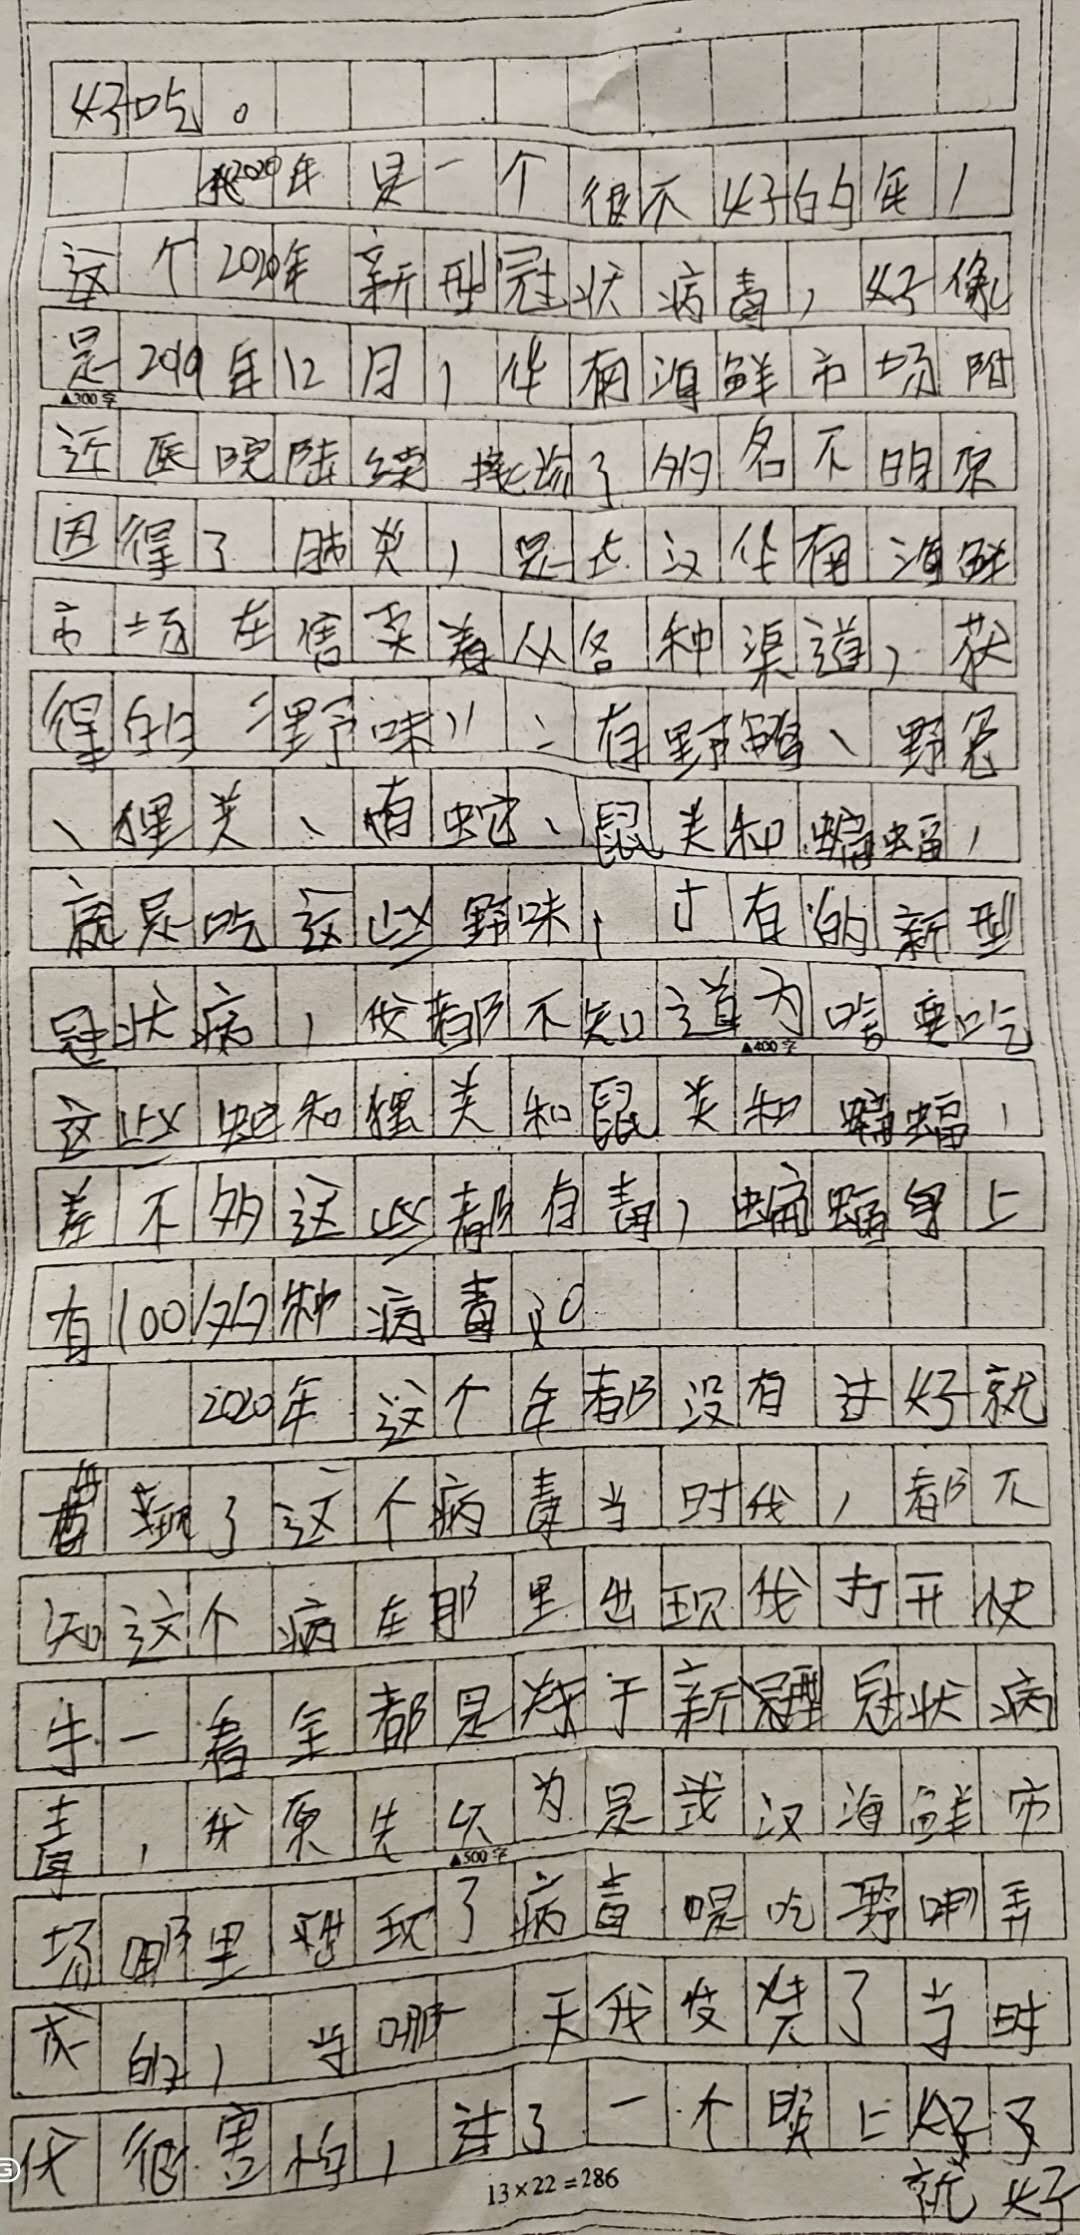 好吃。
2020年是一个很不好的年，
这个2020年新型冠状病毒，好像
是2019年12月，华南海鲜市场附
▲300字
近医院陆续接诊了多名不明原
因得了肺炎，是武汉华南海鲜
市场在售卖着从各种渠道，获
得的“野味”：有野猪、野兔
、狸类、有蛇、鼠类和蝙蝠，
就是吃这些野味，才有的新型
冠状病，我都不知道为啥要吃
▲400字
这些蛇和狸类和鼠类和蝙蝠，
差不多这些都有毒，蝙蝠身上
有100多种病毒。
2020年这个年都没有过好就
了这个病毒当时我，都不
知这个病在那里出现我打开快
手一看全都是关于新型冠状病
毒，我原先以为是武汉海鲜市
▲500字
场哪里出现了病毒是吃野味弄
成的，当哪一天我发烧了当时
我很害怕，过了一个晚上好了
就好
13×22=286